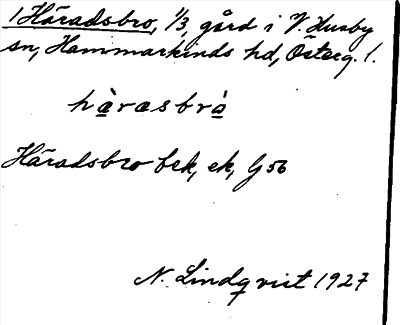 1 Häradsbro, 1/3, gård i V. Husby
sn, Hammarkinds hd, Österg. l.
hàrasbrà
Häradsbro bek, ek, G 56
N. Lindqvist 1927